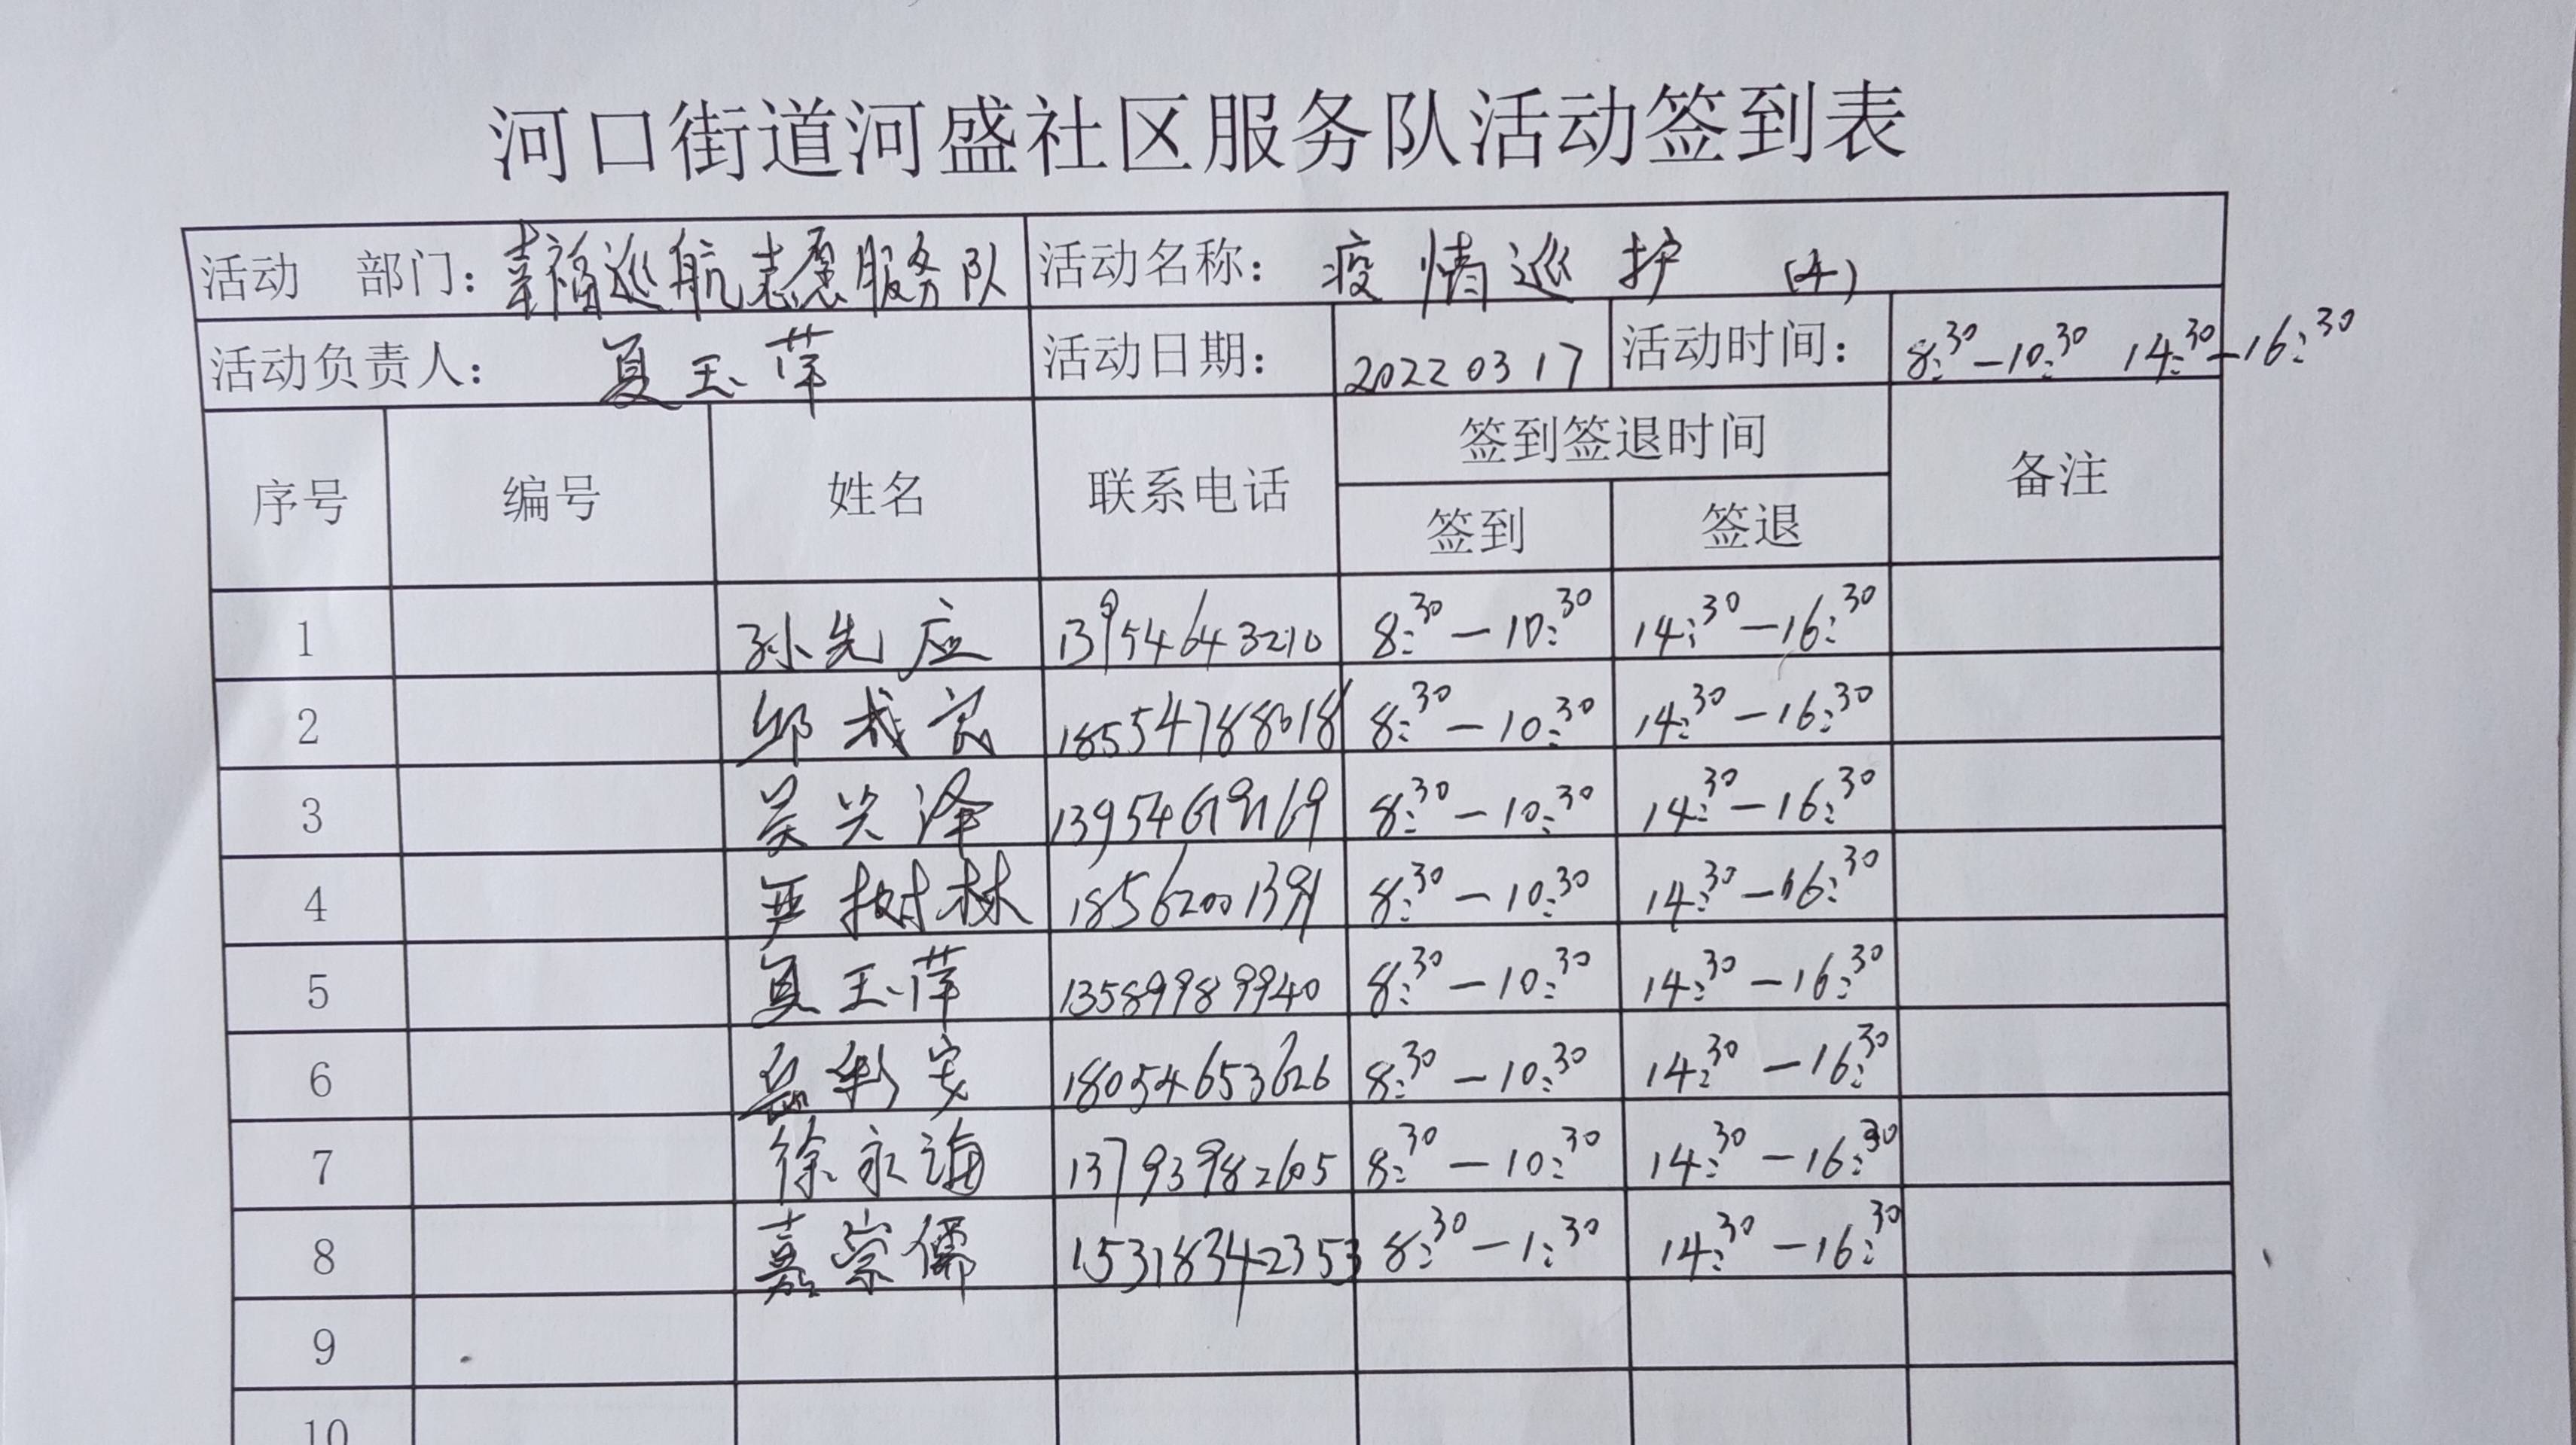 河口街道河盛社区服务队活动签到表
活动 部门：幸福巡航志愿服务队 活动名称：疫情巡护 (4)
活动负责人：夏玉萍 活动日期：20220317 活动时间：8:30-10:30 14:30-16:30
序号 编号 姓名 联系电话 签到签退时间 备注
签到 签退
1 孙先应 13954643210 8:30-10:30 14:30-16:30
2 邱成良 18554788018 8:30-10:30 14:30-16:30
3 吴兴泽 8:30-10:30 14:30-16:30
4 严树林 18562001391 8:30-10:30 14:30-16:30
5 夏玉萍 13589989940 8:30-10:30 14:30-16:30
6 18054653626 8:30-10:30 14:30-16:30
7 徐永海 13793982605 8:30-10:30 14:30-16:30
8 嘉崇儒 15318342353 8:30-1:30 14:30-16:30
9
10